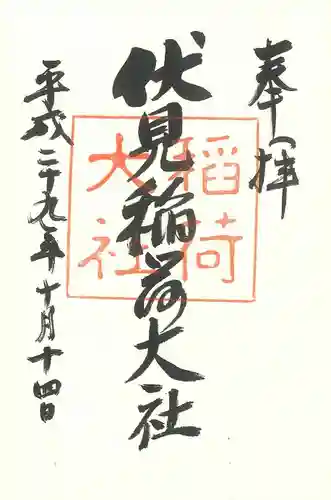 奉拝
伏見稲荷大社
平成二十九年十月十四日
稲荷
大社